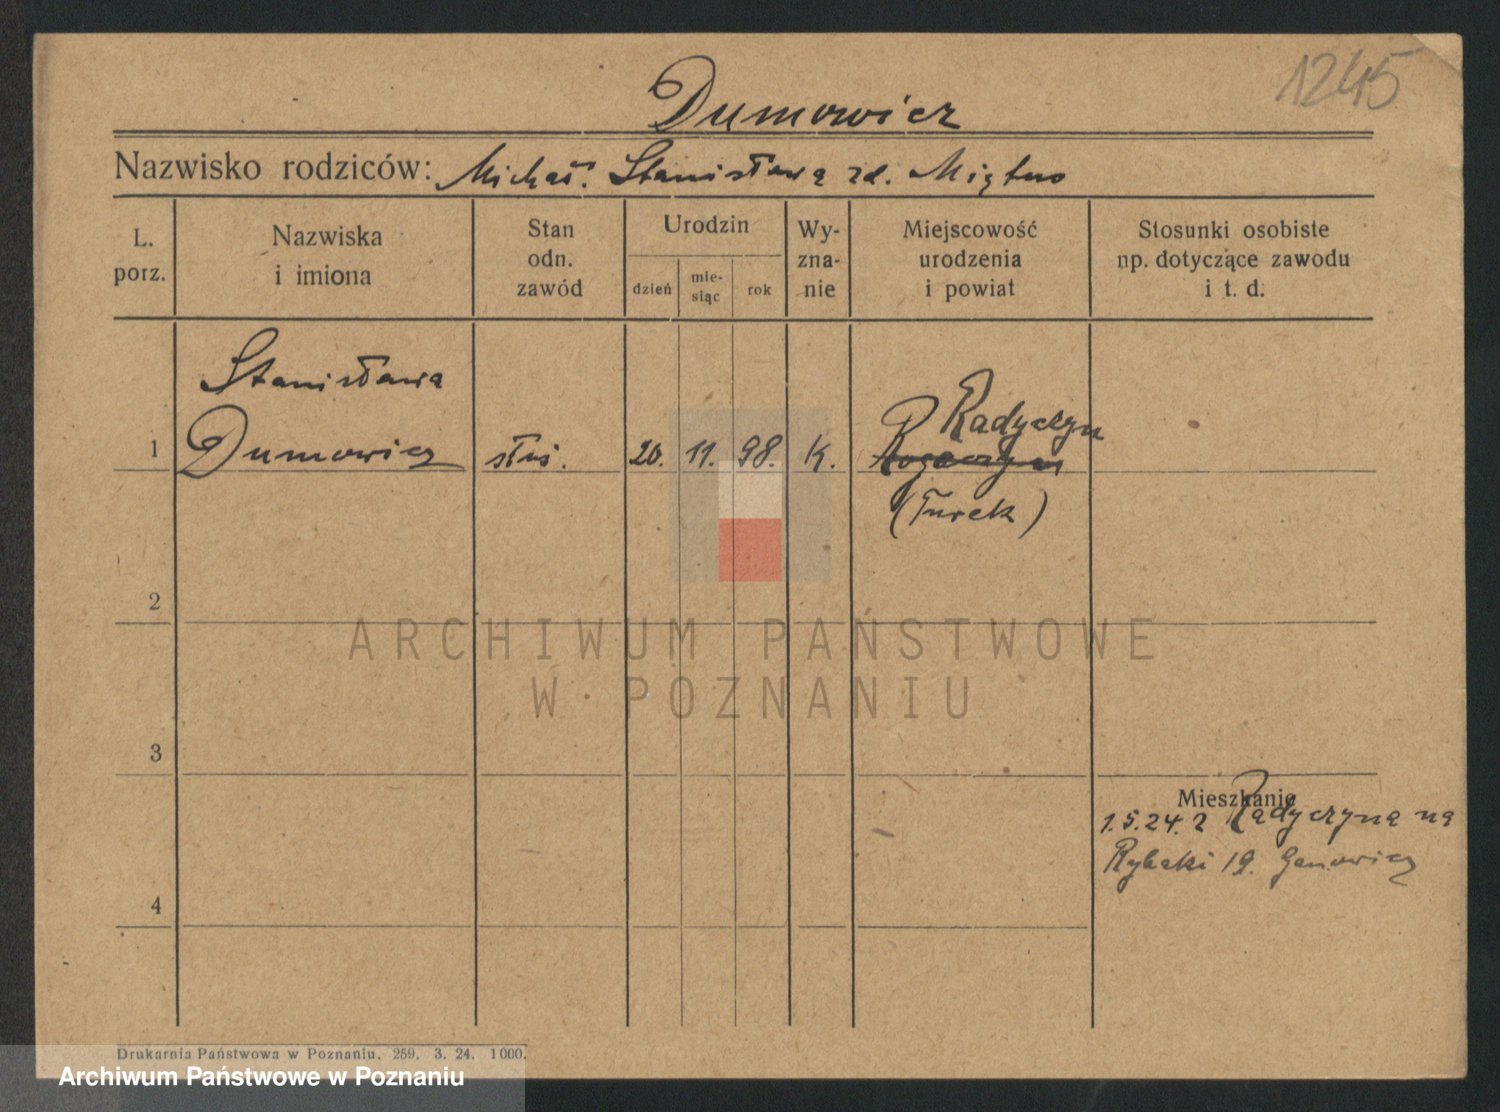 1245
Dumowicz
Nazwisko rodziców: Michał. Stanisława zd. Miętus
L. porz.
Nazwiska i imiona
Stan odn. zawód
Urodzin
dzień
mie- siąc
rok
Wy- zna- nie
Miejscowość urodzenia i powiat
Stosunki osobiste np. dotyczące zawodu i t. d.
Stanisława
1 Dumowicz służ. 20. 11. 98. K. Radyczyn
(Turek)
2
ARCHIWUM PAŃSTWOWE
W POZNANIU
3
Mieszkanie
1.5.24. z Radyczyna na
Rybaki 19.
4
Drukarnia Państwowa w Poznaniu. 259. 3. 24. 1000.
Archiwum Państwowe w Poznaniu